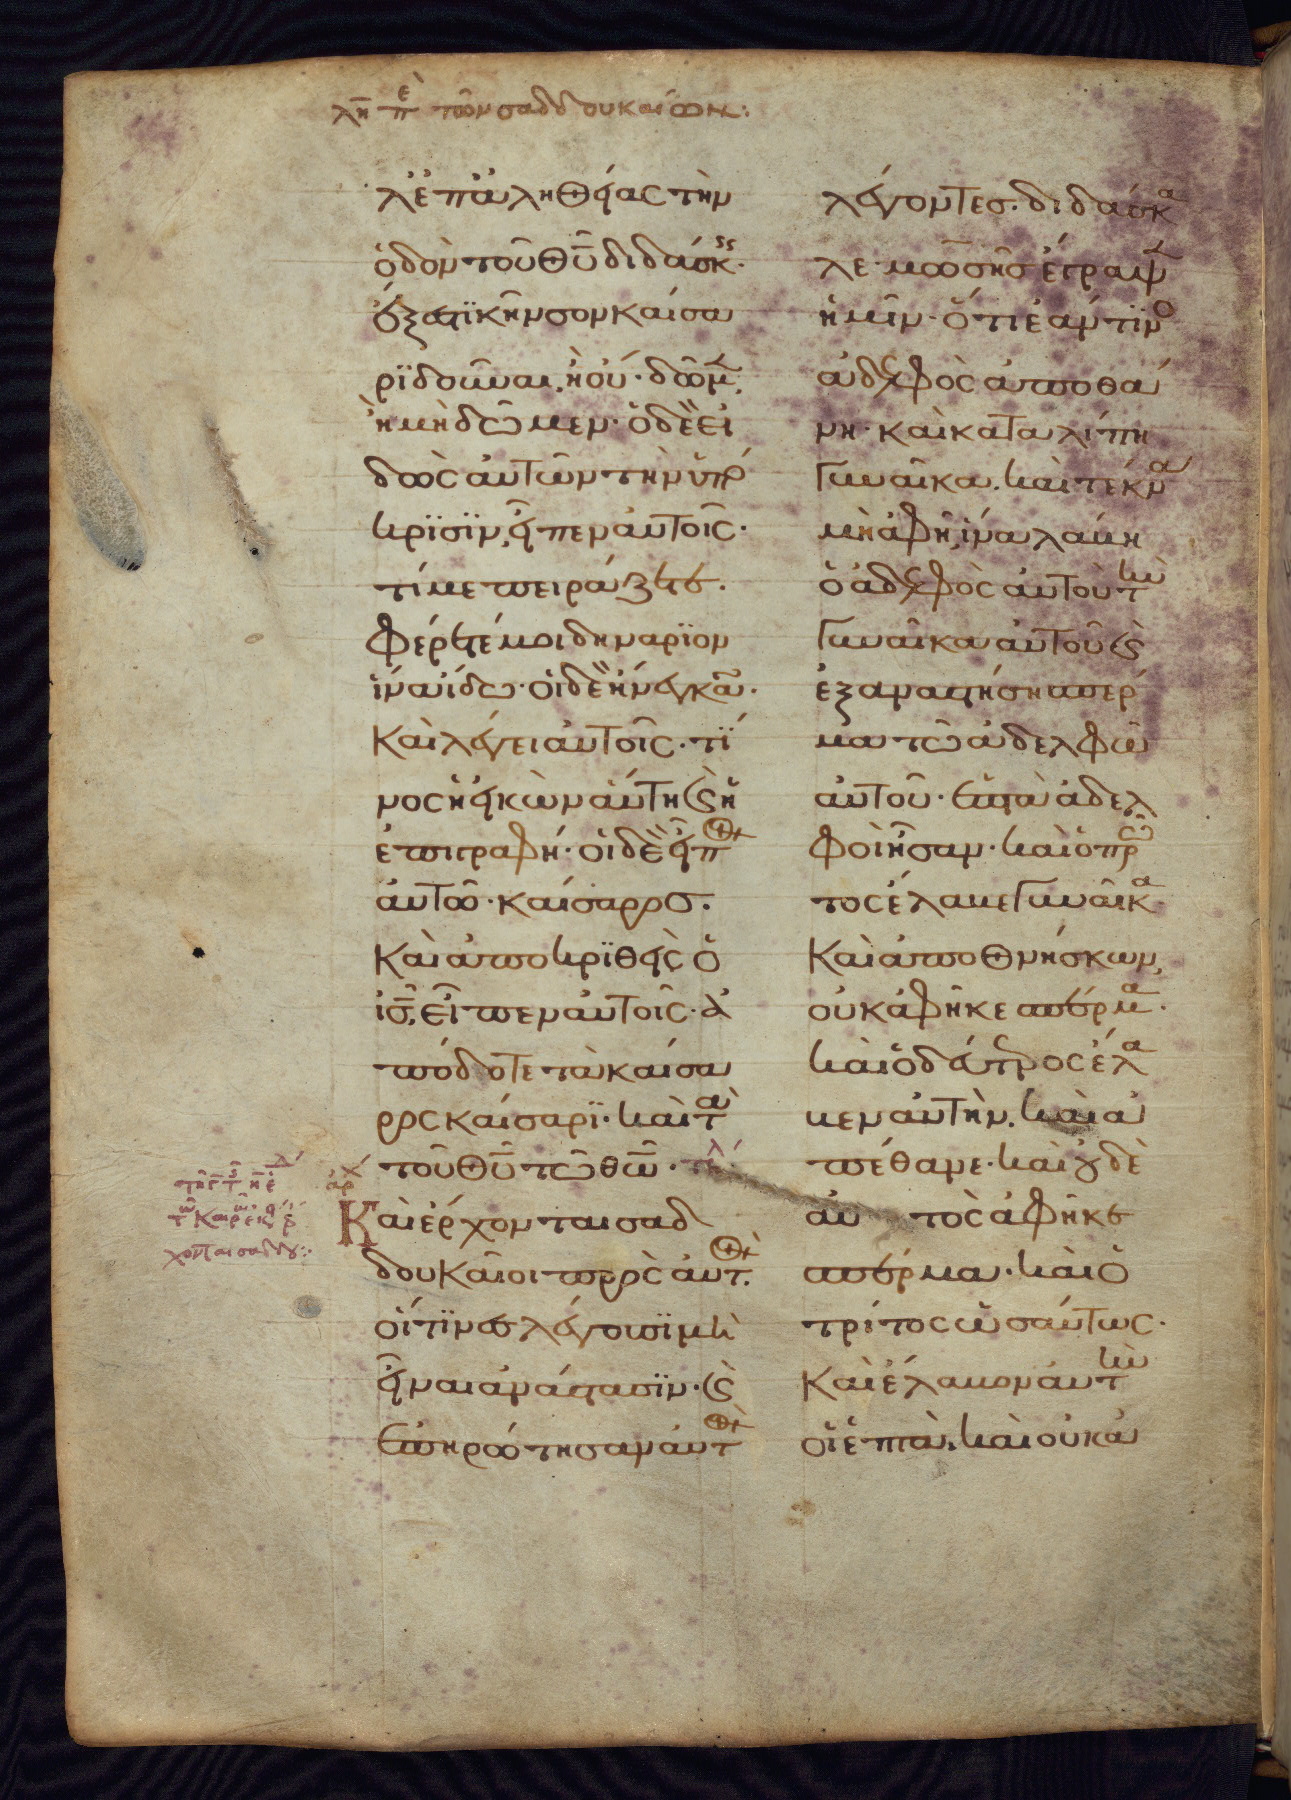 λη περὶ τῶν σαδδουκαίων:
λ ἐπ ἀληθείας τὴν
ὁδὸν τοῦ θυ διδάσκεις.
ἔξεστϊ κῆνσον καίσα
ρϊ δοῦναι, ἢ οὔ· δῶμεν,
ἢ μὴ δῶμεν· ὁ δὲ εἰ
δὼς αὐτῶν τὴν ὑπό
κρϊσϊν, εἶπεν αὐτοῖς·
τί με πειράζετε.
φέρετέ μοι δηναρϊον
ἵνα ἴδω· οἱ δὲ ἤνεγκαν.
Καὶ λέγει αὐτοῖς· τί
νος ἡ εἰκὼν αὕτη καὶ ἡ
ἐπιγραφή· οἱ δὲ εἶπον
αὐτῶ· καίσαρος.
Καὶ ἀποκρϊθεὶς ὁ
ις, εἶπεν αὐτοῖς· ἀ
πόδοτε τὰ καίσα
ρος καίσαρϊ· καὶ τὰ
τοῦ θυ τῶ θω· τελ
Καὶ ἔρχονται σαδ
δουκαῖοι πρὸς αὐτὸν.
οἵτϊνες λέγουσϊ μὴ
εἶναι ἀνάστασϊν· καὶ
ἐπηρώτησαν αὐτὸν
ἀρχ
τῶ καιρῶ ἔρ
χονται σαδδου:
λέγοντες· διδάσκα
λε· μωσῆς ἔγραψεν
ἡμῖν· ὅτι ἐάν τϊνο
ἀδελφὸς ἀποθά
νη· καὶ καταλίπη
γυναῖκα. καὶ τέκνα
μὴ ἀφῆ, ἵνα λάβη
ὁ ἀδελφὸς αὐτοῦ τὴν
γυναῖκα αὐτοῦ καὶ
ἐξαναστήση σπέρ
μα τῶ ἀδελφῶ
αὐτοῦ· ἑπτὰ ἀδελ
φοὶ ἦσαν· καὶ ὁ πρῶ
τος ἔλαβε γυναῖκα
Καὶ ἀποθνήσκων,
οὐκ ἀφῆκε σπέρμα.
καὶ ὁ δεύτερος ἔλα
βεν αὐτὴν. καὶ ἀ
πέθανε· καὶ οὐδὲ
αὐτὸς ἀφῆκε
σπέρμα· καὶ ὁ
τρίτος ὡσαύτως·
Καὶ ἔλαβον αὐτὴν
οἱ ἑπτὰ. καὶ οὐκ ἀ